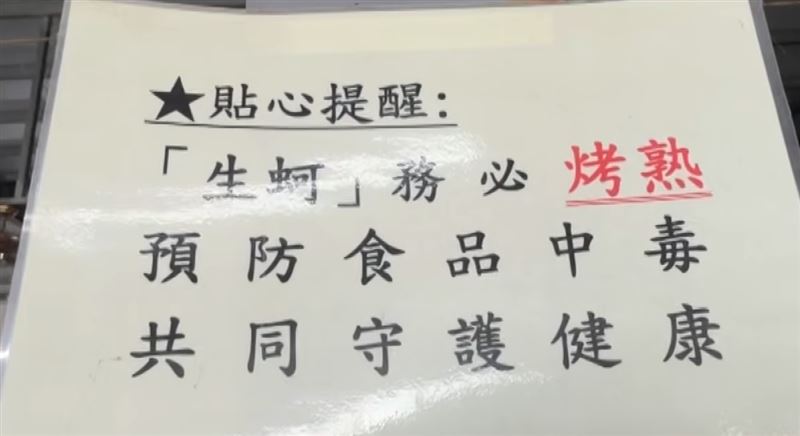 ★貼心提醒:
「生蚵」務必烤熟
預防食品中毒
共同守護健康